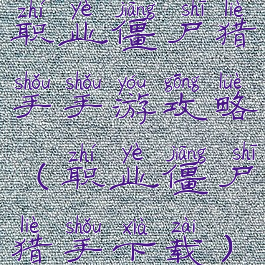 zhí yè jiāng shī liè
职业僵尸猎
shǒu shǒu yóu gōng lüè
手手游攻略
zhí yè jiāng shī
（职业僵尸
liè shǒu xià zǎi
猎手下载）